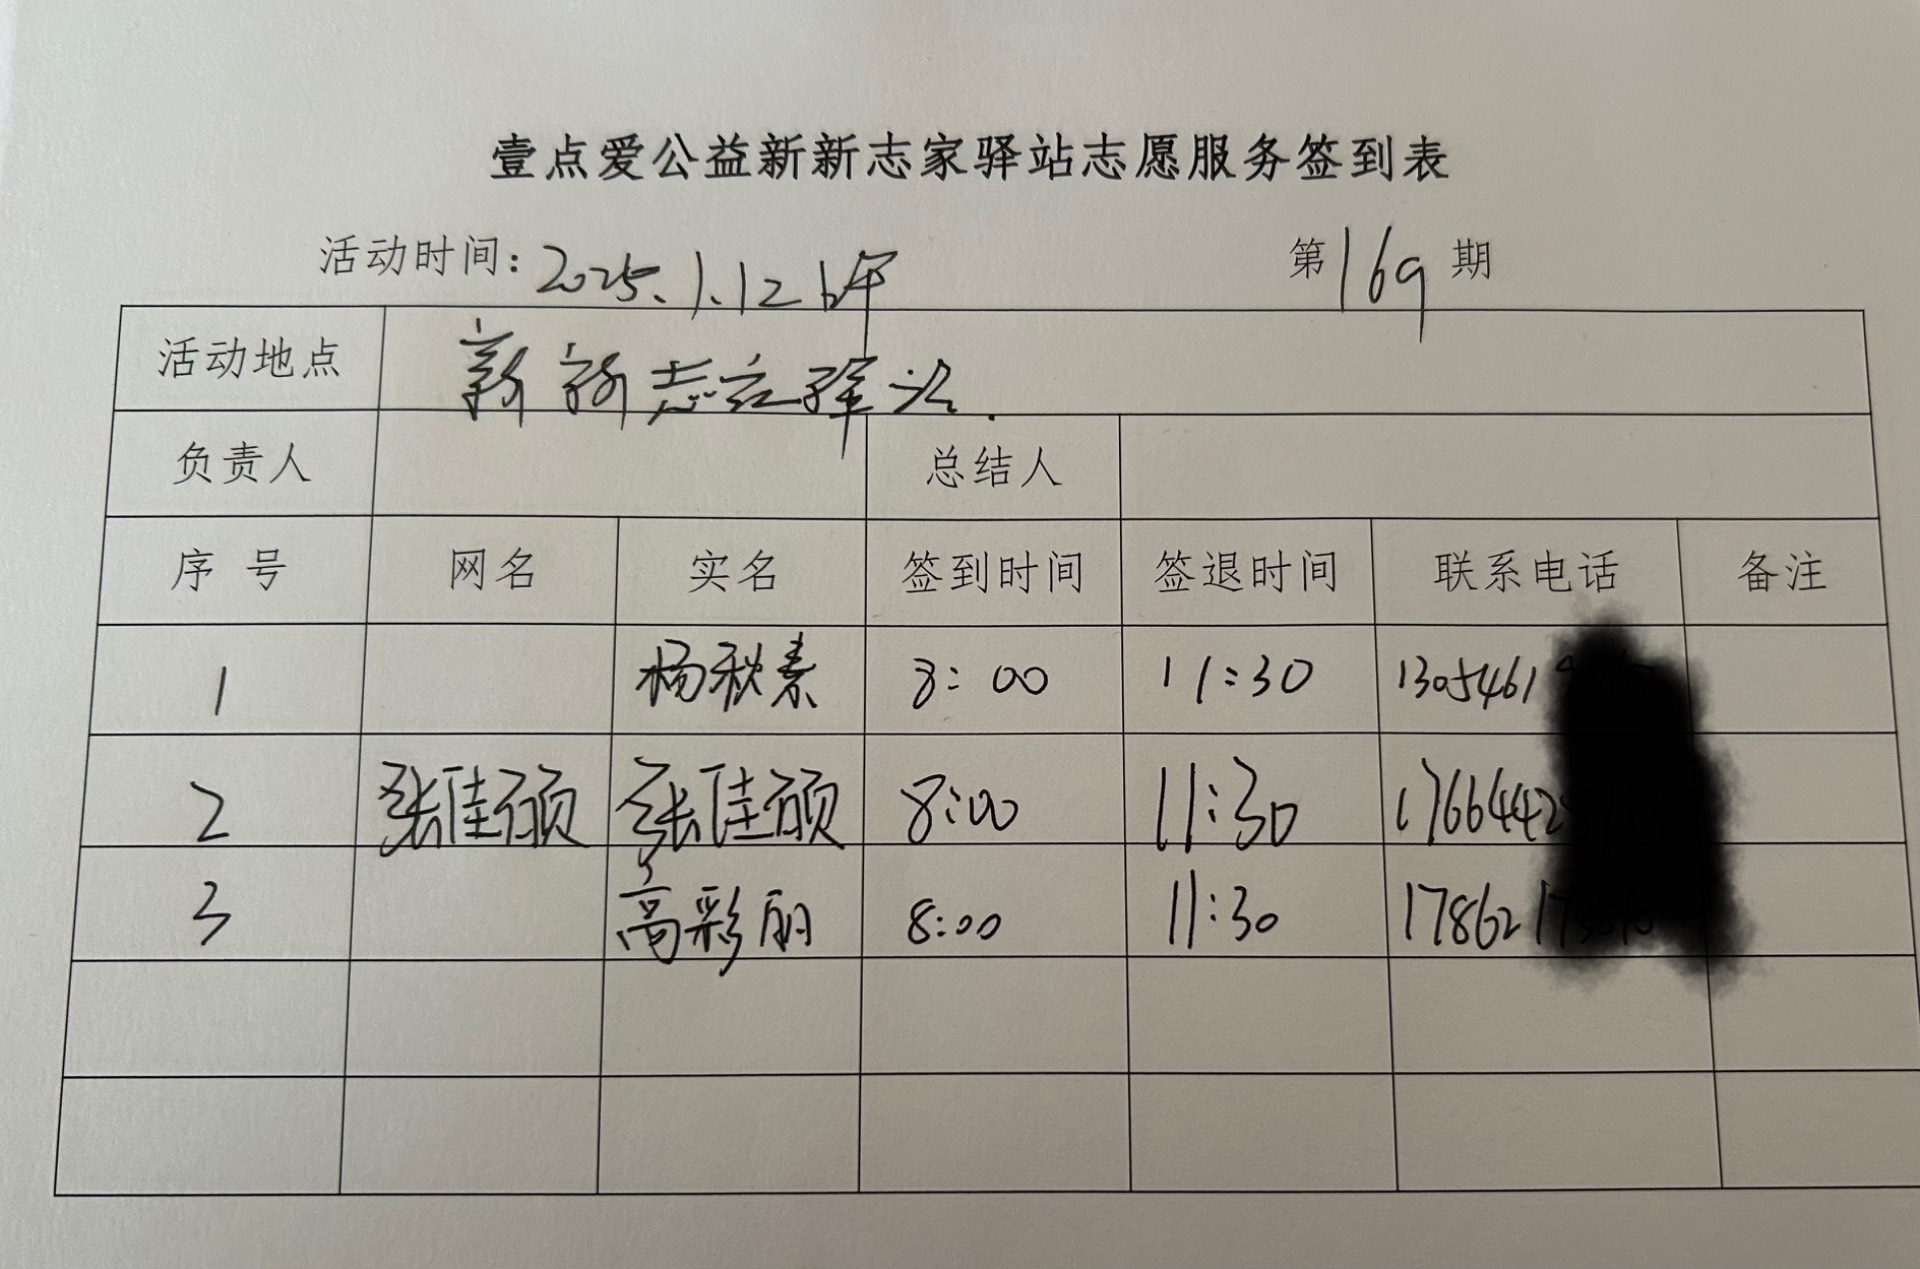 壹点爱公益新新志家驿站志愿服务签到表
活动时间：2025.1.12 上午 第169期
活动地点 新新志家驿站.
负责人 总结人
序号 网名 实名 签到时间 签退时间 联系电话 备注
1 杨秋素 8:00 11:30 1305461
2 张佳硕 张佳硕 8:00 11:30 17664428
3 高彩丽 8:00 11:30 17862